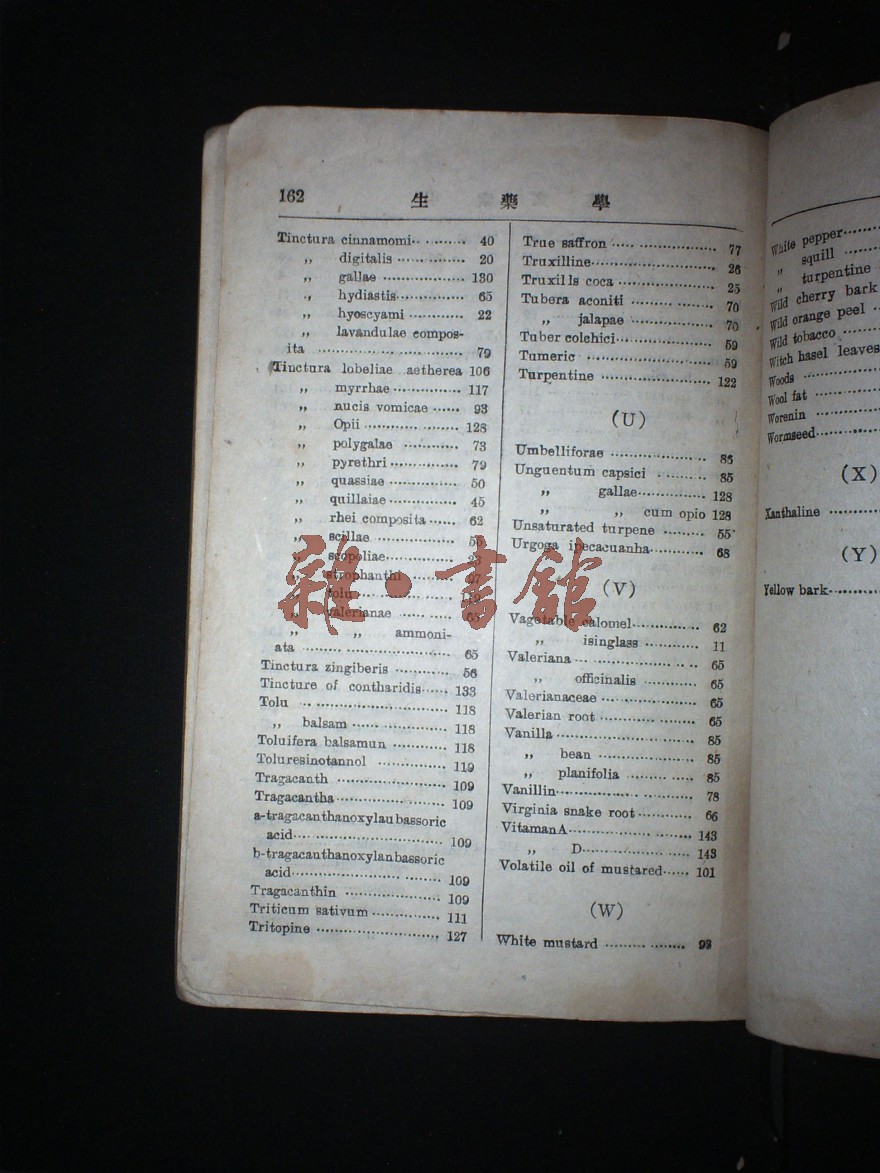 162 生 藥 學
Tinctura cinnamomi 40
,, digitalis 20
,, gallae 130
,, hydiastis 65
,, hyoscyami 22
,, lavandulae compos-
ita 79
Tinctura lobeliae aetherea 106
,, myrrhae 117
,, nucis vomicae 93
,, Opii 128
,, polygalae 73
,, pyrethri 79
,, quassiae 50
,, quillaiae 45
,, rhei composita 62
,, scillae
,, scopoliae
,, strophanthi
,, tolu
,, valerianae
,, ,, ammoni-
ata 65
Tinctura zingiberis 56
Tincture of contharidis 133
Tolu 118
,, balsam 118
Toluifera balsamun 118
Toluresinotannol 119
Tragacanth 109
Tragacantha 109
a-tragacanthanoxylaubassoric
acid 109
b-tragacanthanoxylanbassoric
acid 109
Tragacanthin 109
Triticum sativum 111
Tritopine 127
True saffron 77
Truxilline 26
Truxills coca 25
Tubera aconiti 70
,, jalapae 70
Tuber colchici 59
Tumeric 59
Turpentine 122
(U)
Umbelliforae
Unguentum capsici 85
,, gallae 128
,, ,, cum opio 128
Unsaturated turpene 55
Urgoga ipecacuanha 68
(V)
Vagetable calomel 62
,, isinglass 11
Valeriana 65
,, officinalis 65
Valerianaceae 65
Valerian root 65
Vanilla 85
,, bean 85
,, planifolia 85
Vanillin 78
Virginia snake root 66
VitamanA 143
,, D 143
Volatile oil of mustared 101
(W)
White mustard
White pepper
,, squill
,, turpentine
Wild cherry bark
Wild orange peel
Wild tobacco
Witch hasel leaves
Woods
Wool fat
Worenin
Wormseed
(X)
Xanthaline
(Y)
Yellow bark
雜·書館